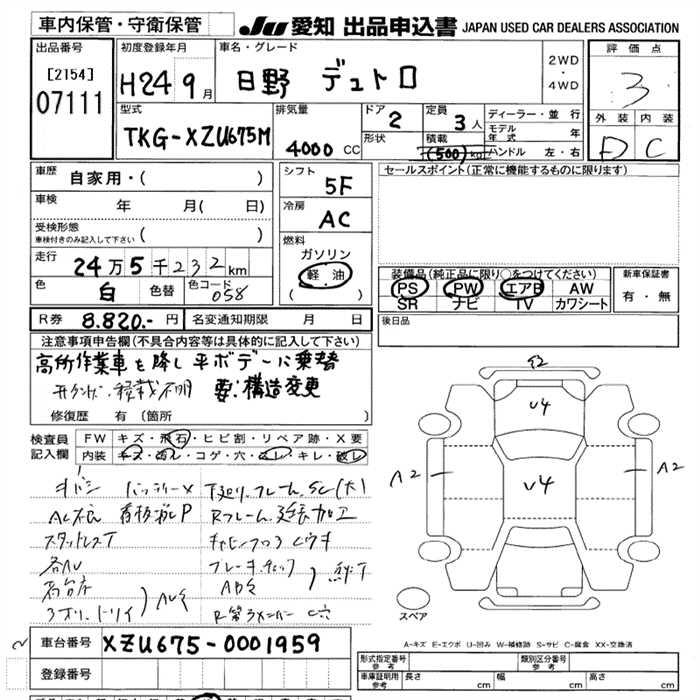 車内保管・守衛保管
JU 愛知 出品申込書 JAPAN USED CAR DEALERS ASSOCIATION
出品番号
[2154]
07111
初度登録年月
H24年9月
車名・グレード
日野 デュトロ
2WD
・
4WD
評価点
3
外装 内装
D C
型式
TKG-XZU675M
排気量
4000 CC
ドア 2
形状
定員 3人
積載
(500)kg
ディーラー・並行
モデル年式 年
ハンドル 左・右
車歴
自家用・( )
車検 年 月( 日)
受検形態
車検付きのみ記入して下さい ( )
走行
24万5千232km
色 白 色替 色コード 058
シフト
5F
冷房
AC
燃料
ガソリン
軽油
( )
セールスポイント(正常に機能するものに限ります)
装備品(純正品に限り○をつけてください)
PS PW エアB AW
SR ナビ TV カワシート
新車保証書
有・無
R券 8.820.-円 名変通知期限 月 日
後日品
注意事項申告欄(不具合内容等は具体的に記入して下さい)
高所作業車を降し平ボデーに乗替
積載不明 要.構造変更
修復歴 有(箇所 )
検査員記入欄
FW キズ・飛石・ヒビ割・リペア跡・X要
内装 キズ・汚レ・コゲ・穴・スレ・キレ・破レ
キバン バッテリーX 下廻り.フレーム.SC(大)
Rフレーム.延長加工
スタッドレスT
ABS
U4
U4
A2
A2
スペア
A-キズ E-エクボ U-凹み W-補修跡 S-サビ C-腐食 XX-交換済
車台番号 XZU675-0001959
登録番号
形式指定番号 参考
類別区分番号 参考
車庫証明用 参考 長さ cm 幅 cm 高さ cm